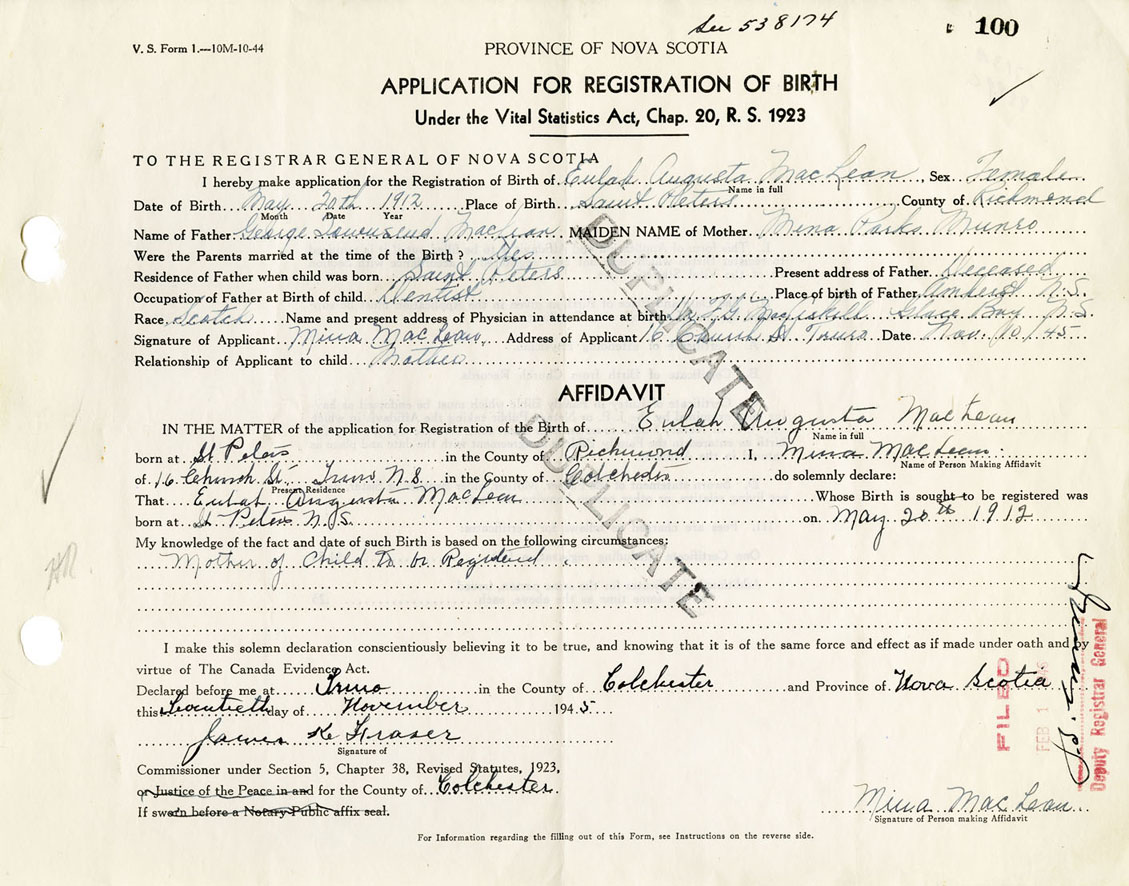 See 538174
100
V. S. Form 1.—10M-10-44
PROVINCE OF NOVA SCOTIA
APPLICATION FOR REGISTRATION OF BIRTH
Under the Vital Statistics Act, Chap. 20, R. S. 1923
TO THE REGISTRAR GENERAL OF NOVA SCOTIA
I hereby make application for the Registration of Birth of Eulah Augusta MacLean, Sex Female
Name in full
Date of Birth May 20th 1912 Place of Birth Saint Peters County of Richmond
Month Date Year
Name of Father George Townsend MacLean MAIDEN NAME of Mother Mina Parks Munro
Were the Parents married at the time of the Birth ? Yes
Residence of Father when child was born Saint Peters Present address of Father Deceased
Occupation of Father at Birth of child Dentist Place of birth of Father Amherst N.S.
Race Scotch Name and present address of Physician in attendance at birth Glace Bay N.S.
Signature of Applicant Mina MacLean Address of Applicant 16 Church St Truro Date Nov. 10/45
Relationship of Applicant to child Mother
DUPLICATE
AFFIDAVIT
IN THE MATTER of the application for Registration of the Birth of Eulah Augusta MacLean
Name in full
born at St Peters in the County of Richmond I, Mina MacLean
Name of Person Making Affidavit
of 16 Church St. Truro N.S. in the County of Colchester do solemnly declare:
Present Residence
That Eulah Augusta MacLean Whose Birth is sought to be registered was
born at St. Peters N.S. on May 20th 1912
DUPLICATE
My knowledge of the fact and date of such Birth is based on the following circumstances:
Mother of Child to be Registered.
I make this solemn declaration conscientiously believing it to be true, and knowing that it is of the same force and effect as if made under oath and by
virtue of The Canada Evidence Act.
Declared before me at Truro in the County of Colchester and Province of Nova Scotia
this Twentieth day of November 1945
James K. Fraser
Signature of
Commissioner under Section 5, Chapter 38, Revised Statutes, 1923,
or Justice of the Peace in and for the County of Colchester.
If sworn before a Notary Public affix seal.
Mina MacLean
Signature of Person making Affidavit
For Information regarding the filling out of this Form, see Instructions on the reverse side.
FILED
FEB 1
Deputy Registrar General